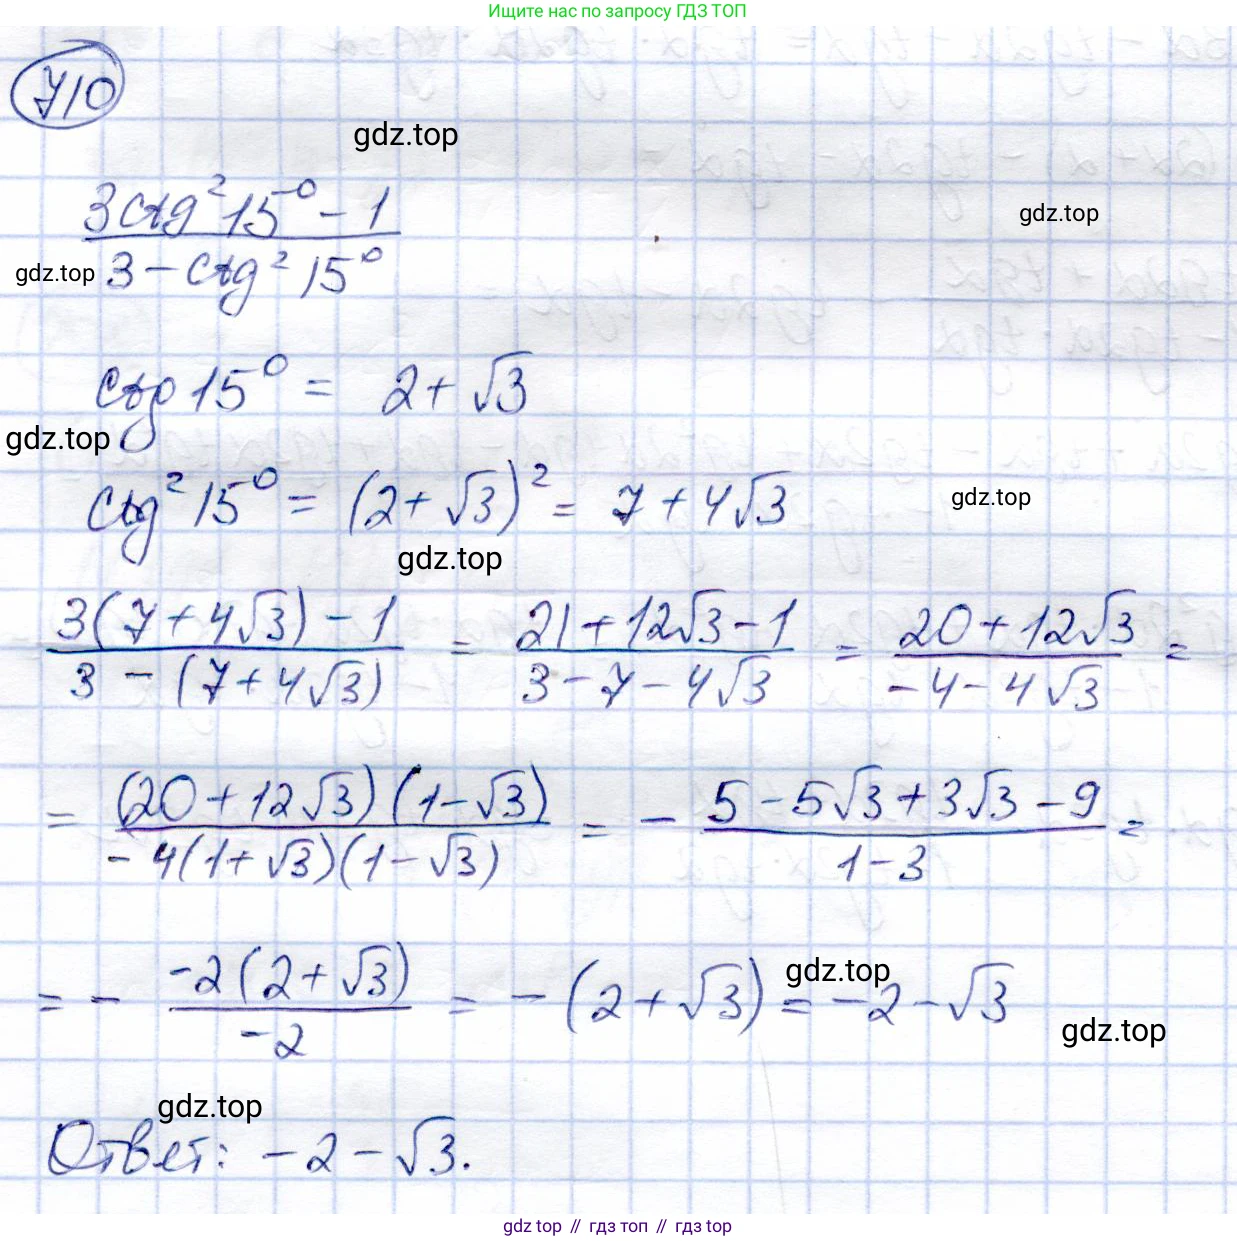 Ищите нас по запросу ГДЗ ТОП
710
gdz.top
3ctg²15° - 1
gdz.top
gdz.top 3 - ctg² 15°
ctg 15° = 2 + √3
gdz.top
ctg² 15° = (2 + √3)² = 7 + 4√3
gdz.top
gdz.top
3(7 + 4√3) - 1 / 3 - (7 + 4√3) = 21 + 12√3 - 1 / 3 - 7 - 4√3 = 20 + 12√3 / -4 - 4√3 =
= (20 + 12√3)(1 - √3) / -4(1 + √3)(1 - √3) = - 5 - 5√3 + 3√3 - 9 / 1 - 3 =
= - -2(2 + √3) / -2 = -(2 + √3) = -2 - √3
gdz.top
gdz.top
gdz.top
Ответ: -2 - √3.
gdz top // гдз топ // гдз top